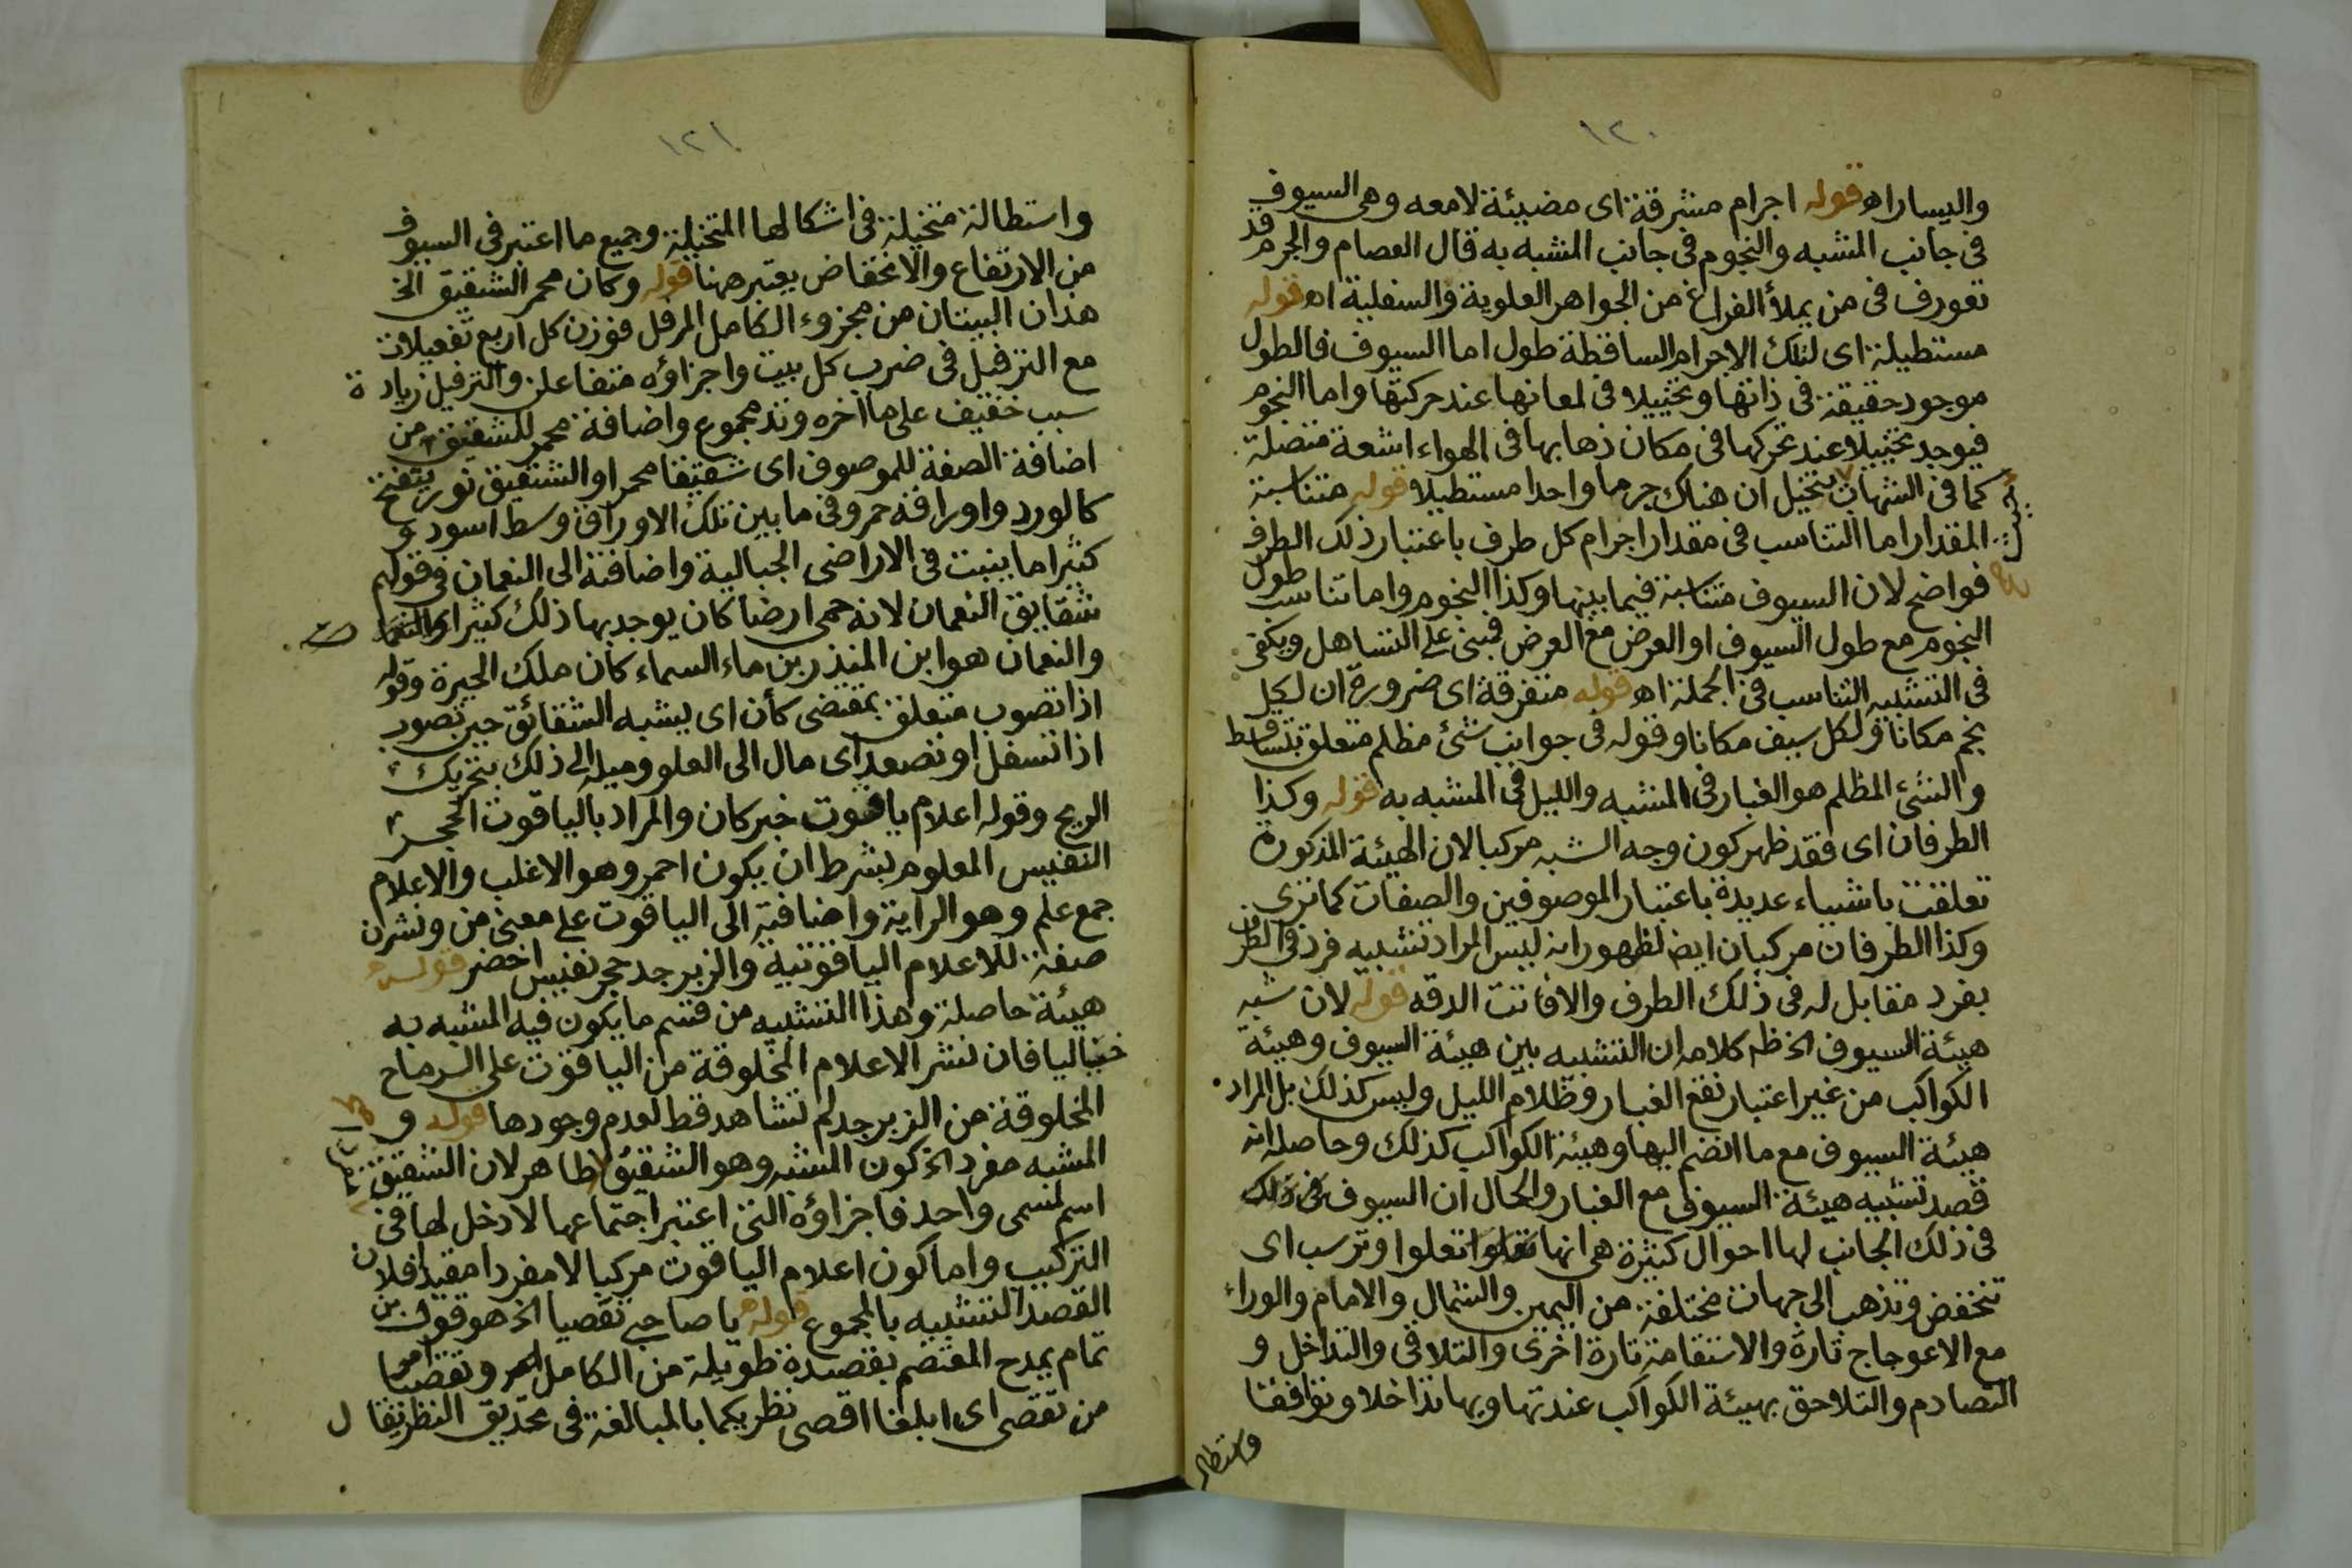 ١٢٠
واليسار اه قوله اجرام مشرقة اى مضيئة لامعه وهى السيوف
فى جانب المشبه والنجوم فى جانب المشبه به قال العصام والجرم قد
تعورف فى من يملأ الفراغ من الجواهر العلوية والسفلية اه قوله
مستطيلة اى لتلك الاجرام الساقطة طول اما السيوف فالطول
موجود حقيقة فى ذاتها وتخييلا فى لمعانها عند حركتها واما النجوم
فيوجد تخييلا عند تحركها فى مكان ذهابها فى الهواء اشعة متصلة
كما فى الشهاب يتخيل ان هناك جرما واحدا مستطيلا قوله متناسبة
المقدار اما التناسب فى مقدار اجرام كل طرف باعتبار ذلك الطرف
فواضح لان السيوف متناسبة فيما بينها وكذا النجوم واما تناسب طول
النجوم مع طول السيوف او العرض مع العرض فبنى على التساهل ويكفى
فى التشبيه التناسب فى الجملة اه قوله متفرقة اى ضرورة ان لكل
نجم مكانا ولكل سيف مكانا وقوله فى جوانب شئ مظلم متعلق بتساقط
والشئ المظلم هو الغبار فى المشبه والليل فى المشبه به قوله وكذا
الطرفان اى فقد ظهر كون وجه الشبه مركبا لان الهيئة المذكورة
تعلقت باشياء عديدة باعتبار الموصوفين والصفات كما ترى
وكذا الطرفان مركبان ايض لظهور انه ليس المراد تشبيه فرد فى الطرف
بفرد مقابل له فى ذلك الطرف والا فاتت الدقه قوله لان شبه
هيئة السيوف الخ ظم كلامه ان التشبيه بين هيئة السيوف وهيئة
الكواكب من غير اعتبار نقع الغبار وظلام الليل وليس كذلك بل المراد
هيئة السيوف مع ما انضم اليها وهيئة الكواكب كذلك وحاصله انه
قصد تشبيه هيئة السيوف مع الغبار والحال ان السيوف فى ذلك
فى ذلك الجانب لها احوال كثيرة هى انها تعلوا وترسب اى
تنخفض وتذهب الى جهات مختلفة من اليمين والشمال والامام والوراء
مع الاعوجاج تارة والاستقامة تارة اخرى والتلاقى والتداخل و
التصادم والتلاحق بهيئة الكواكب عند تهاويها تداخلا وتوافقا
واستطالة
١٢١
واستطالة متخيلة فى اشكالها المتخيلة وجميع ما اعتبر فى السيوف
من الارتفاع والانخفاض يعتبر هنا قوله وكان محمر الشقيق الخ
هذان البيتان من مجزوء الكامل المرفل فوزن كل اربع تفعيلات
مع الترفيل فى ضرب كل بيت واجزاؤه متفاعلن والترفيل زيادة
سبب خفيف على ما اخره وتد مجموع واضافة محمر للشقيق من
اضافة الصفة للموصوف اى شقيقا محمرا والشقيق نور يتفتح
كالورد واوراقه حمر وفى ما بين تلك الاوراق وسط اسود و
كثيرا ما ينبت فى الاراضى الجبالية واضافته الى النعمان فى قولهم
شقايق النعمان لانه حمى ارضا كان يوجد بها ذلك كثيرا
والنعمان هو ابن المنذر بن ماء السماء كان ملك الحيرة وقوله
اذا تصوب متعلق بمقتضى كأن اى يشبه الشقائق حين تصوب
اذا تسفل او تصعد اى مال الى العلو وميله الى ذلك بتحريك
الريح وقوله اعلام ياقوت خبر كان والمراد بالياقوت الحجر
النفيس المعلوم بشرط ان يكون احمر وهو الاغلب والاعلام
جمع علم وهو الراية واضافته الى الياقوت على معنى من ونشرن
صفة للاعلام الياقوتية والزبرجد حجر نفيس اخضر قوله
هيئة حاصلة وهذا التشبيه من قسم ما يكون فيه المشبه به
خياليا فان نشر الاعلام المخلوقة من الياقوت على الرماح
المخلوقة من الزبرجد لم تشاهد قط لعدم وجودها قوله و
المشبه مفرد الخ كون المشبه وهو الشقيق ظاهر لان الشقيق
اسم لمسمى واحد فاجزاؤه التى اعتبر اجتماعها لا دخل لها فى
التركيب واما كون اعلام الياقوت مركبا لا مفردا مقيدا فلان
القصد التشبيه بالمجموع قوله يا صاحبى تقصيا الخ هو قول
تمام يمدح المعتصم بقصيدة طويلة من الكامل وتقصيا
من تقصى اى ابلغا اقصى نظريكما بالمبالغة فى تحديق النظر يقال